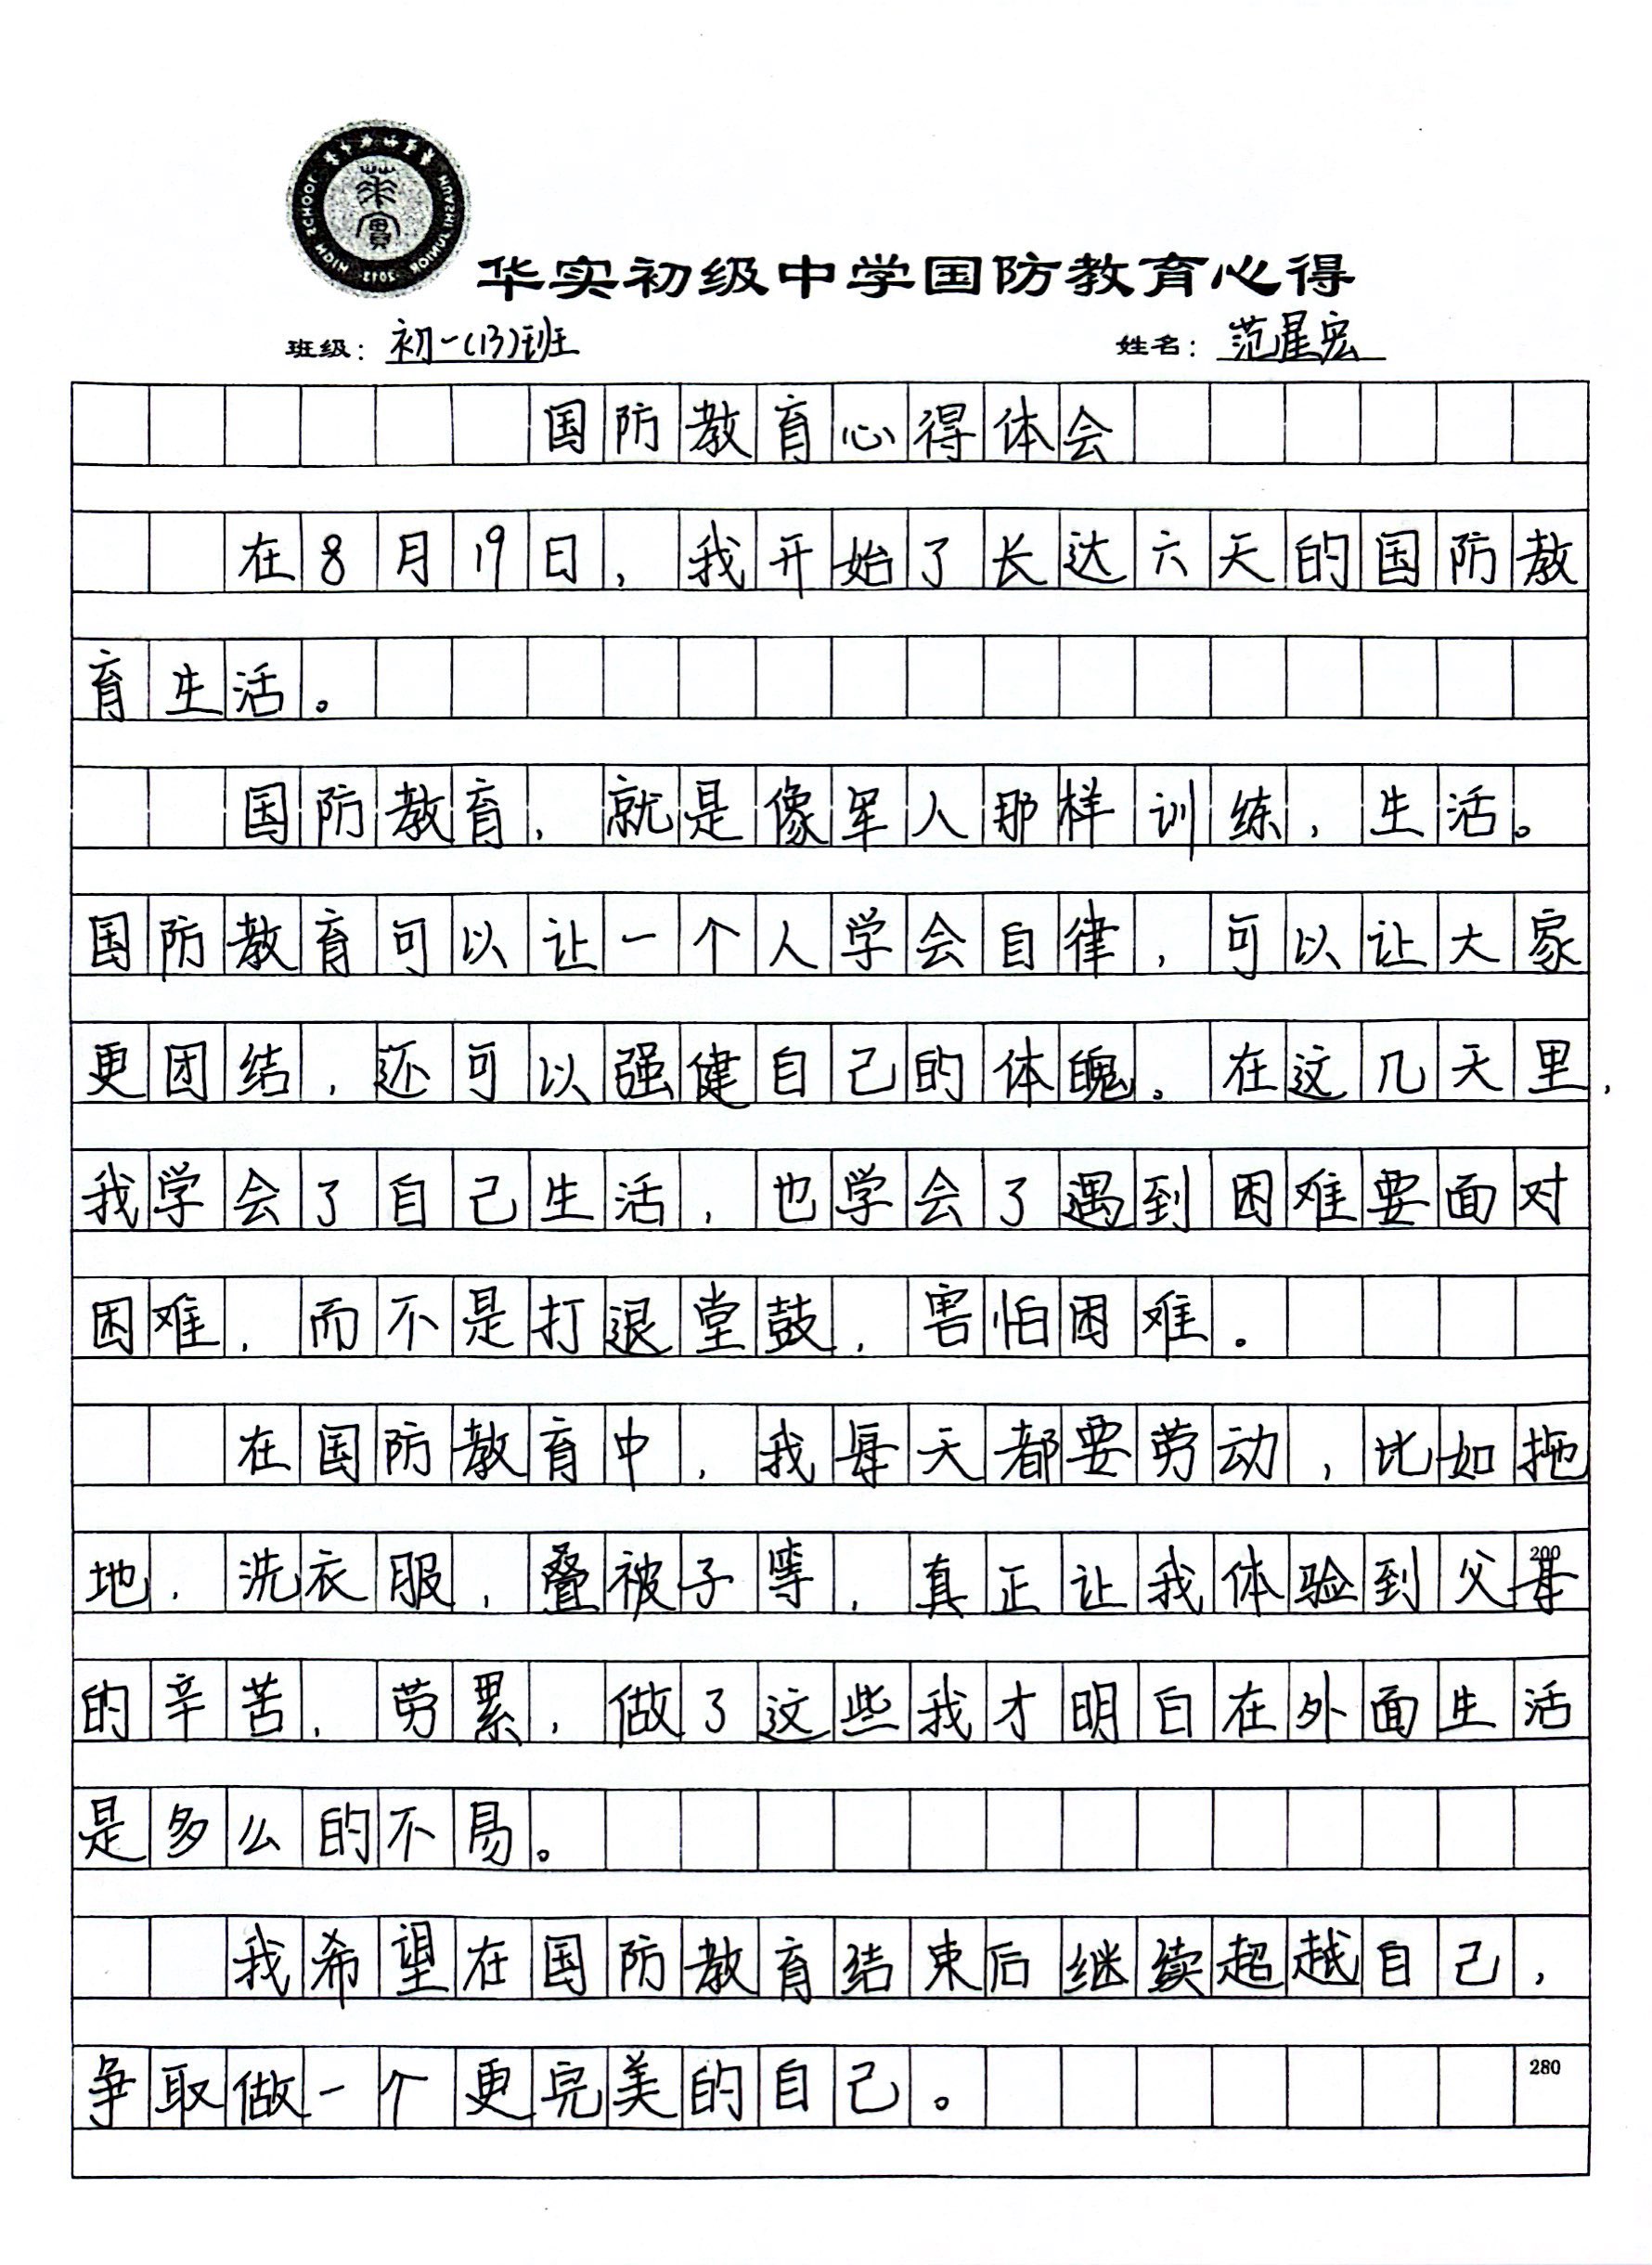 HUASHI JUNIOR HIGH SCHOOL 2013
華實
华实初级中学国防教育心得
班级：初一(13)班 姓名：范星宏
国防教育心得体会
在8月19日，我开始了长达六天的国防教
育生活。
国防教育，就是像军人那样训练，生活。
国防教育可以让一个人学会自律，可以让大家
更团结，还可以强健自己的体魄。在这几天里，
我学会了自己生活，也学会了遇到困难要面对
困难，而不是打退堂鼓，害怕困难。
在国防教育中，我每天都要劳动，比如拖
地，洗衣服，叠被子等，真正让我体验到父母
200
的辛苦，劳累，做了这些我才明白在外面生活
是多么的不易。
我希望在国防教育结束后继续超越自己，
争取做一个更完美的自己。
280